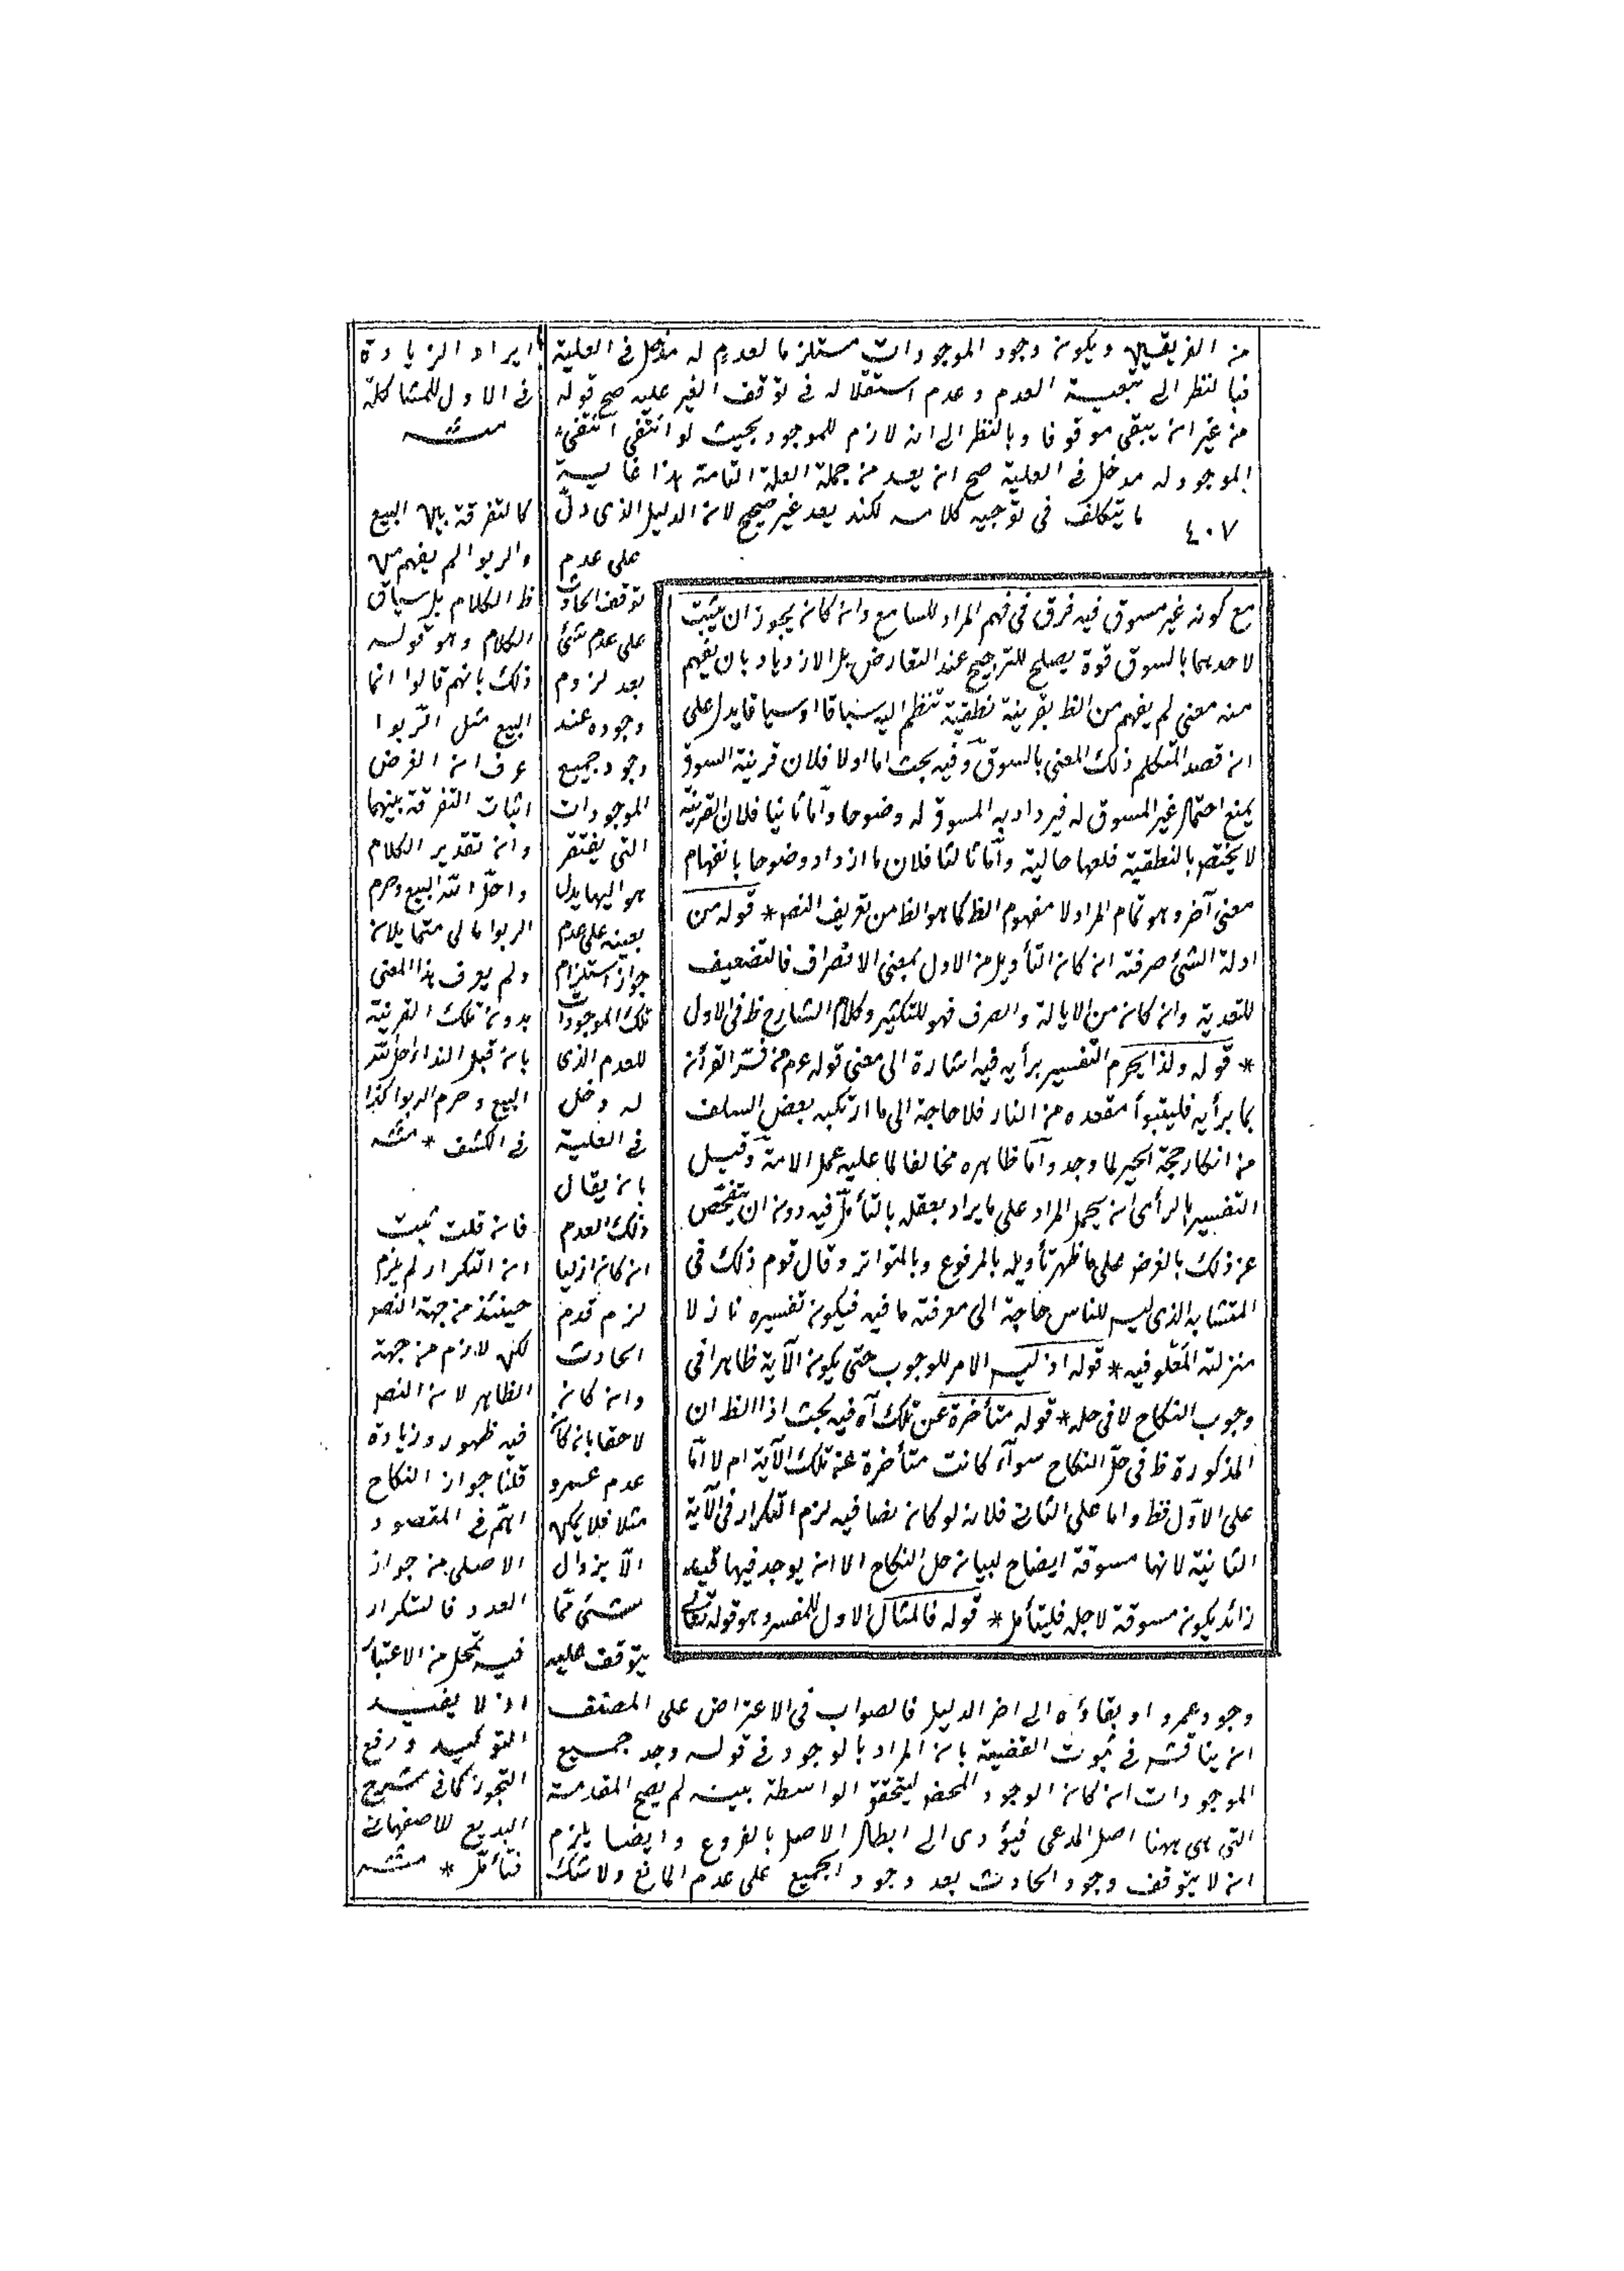 من الفريقين ويكون وجود الموجودات مستلزما لعدم له مدخل في العلية
فبالنظر الى تبعية العدم وعدم استقلاله في توقف الغير عليه صح قوله
من غير ان يبقى موقوفا وبالنظر الى انه لازم للموجود بحيث لو انتفى انتفى
الموجود له مدخل في العلية صح انه يعد من جملة العلة التامة هذا غاية
ما يتكلف في توجيه كلامه لكنه يعد غير صحيح لان الدليل الذى دل
٤٠٧
على عدم
توقف الحادث
على عدم شئ
بعد لزوم
وجوده عند
وجود جميع
الموجودات
التى يفتقر
هو اليها يدل
بعينه على عدم
جواز استلزام
تلك الموجودات
للعدم الذى
له دخل
في العلية
بان يقال
ذلك العدم
ان كان ازليا
لزم قدم
الحادث
وان كان
لاحقا بان كان
عدم عمرو
مثلا فلا يمكن
الا بزوال
شئ مما
يتوقف عليه
وجود عمرو او بقاؤه الى اخر الدليل فالصواب في الاعتراض على المصنف
ان يناقش في ثبوت القضية بان المراد بالوجود في قوله وجد جميع
الموجودات ان كان الوجود المحض ليتحقق الواسطة بينه لم يصح المقدمة
التى هى ههنا اصل المدعى فيؤدى الى ابطال الاصل بالفروع وايضا يلزم
ان لا يتوقف وجود الحادث بعد وجود الجميع على عدم المانع ولا شك
مع كونه غير مسوق فيه فرق في فهم المراد للسامع وان كان يجوز ان يثبت
لاحدهما بالسوق قوة يصلح للترجيح عند التعارض بل الازدياد بان يفهم
منه معنى لم يفهم من الظ بقرينة نطقية تنظم اليه سباقا او سياقا يدل على
ان قصد المتكلم ذلك المعنى بالسوق وفيه بحث اما اولا فلان قرينة السوق
يمنع احتمال غير المسوق له فيزداد به المسوق له وضوحا واما ثانيا فلان القرينة
لا يختص بالنطقية فلعلها حالية واما ثالثا فلان ما ازداد وضوحا بانفهام
معنى آخر وهو تمام المراد لا مفهوم الظ كما هو الظ من تعريف النص * قوله من
اولة الشئ صرفته ان كان التأويل من الاول بمعنى الانصراف فالتضعيف
للتعدية وان كان من الايالة والصرف فهو للتكثير وكلام الشارح ظ في الاول
* قوله ولذا يحرم التفسير برأيه فيه اشارة الى معنى قوله عم من فسر القرآن
بما برأيه فليتبوأ مقعده من النار فلا حاجة الى ما ارتكبه بعض السلف
من انكار حجة الخبر لما وجدوا ظاهره مخالفا لما عليه عمل الامة وقيل
التفسير بالرأى ان يحمل المراد على ما يراد بعقله بالتأمل فيه دون ان يتفحص
عن ذلك بالغرض على ما ظهر تأويله بالمرفوع وبالمتواتر وقال قوم ذلك في
المتشابه الذى ليس للناس حاجة الى معرفته ما فيه فيكون تفسيره نازلا
منزلة الغلو فيه * قوله اذ ليس الامر للوجوب حتى يكون الآية ظاهرا في
وجوب النكاح لا في حله * قوله متأخرة عن تلك آه فيه بحث اذ الظ ان
المذكورة ظ في حل النكاح سواء كانت متأخرة عن تلك الآية ام لا اما
على الاول فظ واما على الثانى فلانه لو كان نصا فيه لزم التكرار في الآية
الثانية لانها مسوقة ايضاح لبيان حل النكاح الا ان يوجد فيها قيد
زائد يكون مسوقة لاجله فليتأمل * قوله فالمثال الاول للمفسر وهو قوله تعالى
ايراد الزيادة
في الاول للمشاكلة
منه
كالتفرقة بين البيع
والربوا لم يفهم من
ظ الكلام بل سياق
الكلام وهو قوله
ذلك بانهم قالوا انما
البيع مثل الربوا
عرف ان الغرض
اثبات التفرقة بينهما
وان تقدير الكلام
واحل الله البيع وحرم
الربوا فانى متماثلان
ولم يعرف هذا المعنى
بدون تلك القرينة
بان قيل ابتداء احل الله
البيع وحرم الربوا كذا
في الكشف * منه
فان قلت ثبت
ان التكرار لم يلزم
حينئذ من جهة النص
لكن لازم من جهة
الظاهر لان النص
فيه ظهور وزيادة
قلنا جواز النكاح
اهم في المقصود
الاصلى من جواز
العدد فالتكرار
فيه محل من الاعتبار
اذ لا يفيد
التوكيد ورفع
التجوز كما في شرح
البديع للاصفهانى
فتأمل * منه